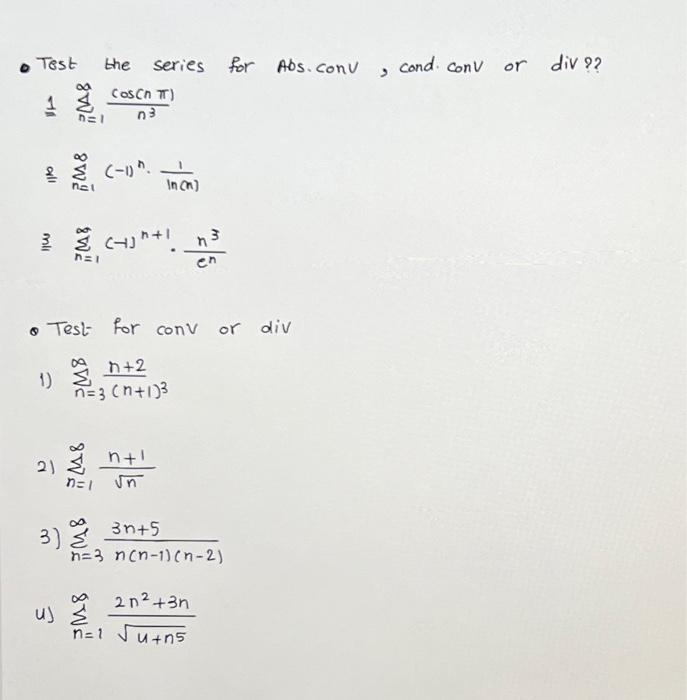 • Test the series for Abs. conv , cond. conv or div ??
1 ∞ Σ n=1 cos(n π) / n³
2 ∞ Σ n=1 (-1)ⁿ · 1 / ln(n)
3 ∞ Σ n=1 (-1)ⁿ⁺¹ · n³ / eⁿ
• Test for conv or div
1) ∞ Σ n=3 n+2 / (n+1)³
2) ∞ Σ n=1 n+1 / √n
3) ∞ Σ n=3 3n+5 / n(n-1)(n-2)
4) ∞ Σ n=1 2n²+3n / √4+n5